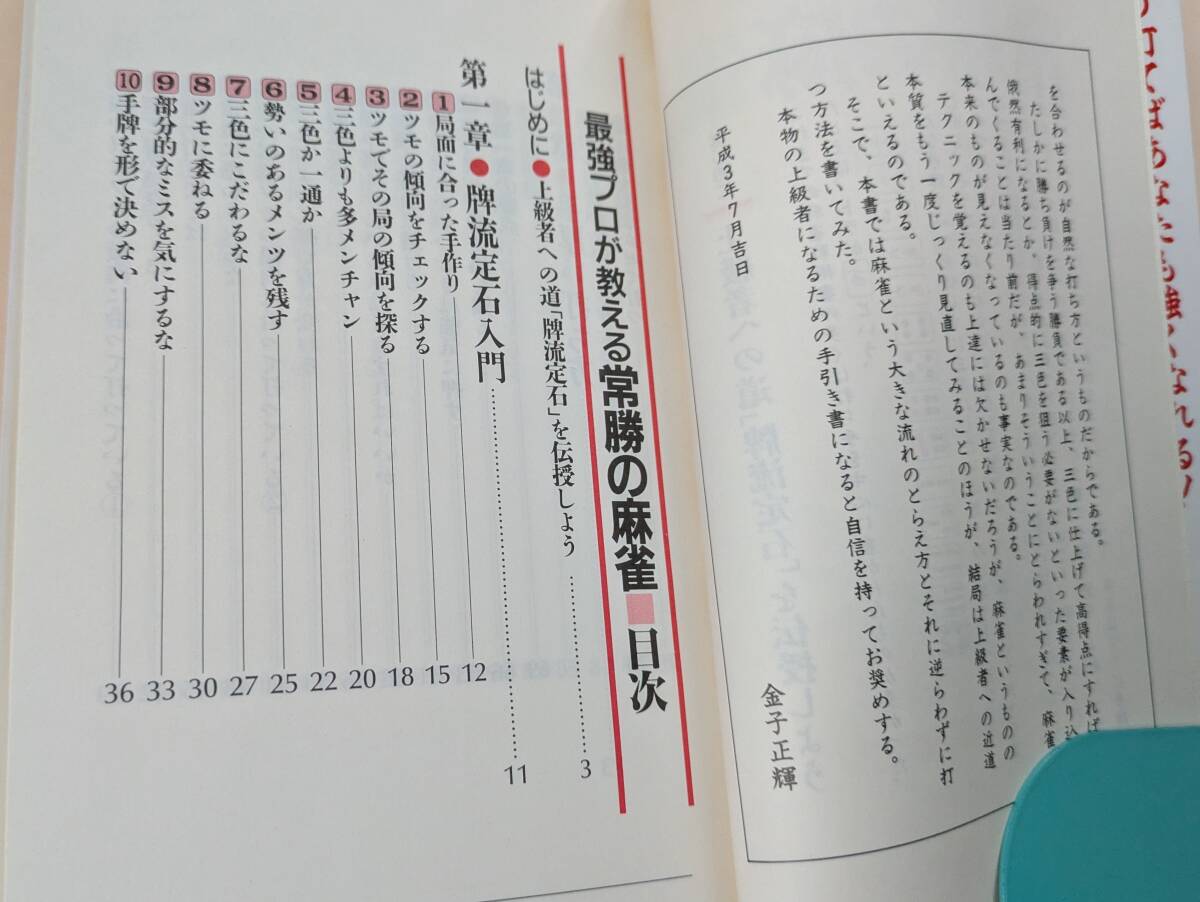 を合わせるのが自然な打ち方というものだからである。
たしかに勝ち負けを争う勝負である以上、三色に仕上げて高得点にすれば
俄然有利になるとか、得点的に三色を狙う必要がないといった要素が入り込
んでくることは当たり前だが、あまりそういうことにとらわれすぎて、麻雀
本来のものが見えなくなっているのも事実なのである。
テクニックを覚えるのも上達には欠かせないだろうが、麻雀というものの
本質をもう一度じっくり見直してみることのほうが、結局は上級者への近道
といえるのである。
そこで、本書では麻雀という大きな流れのとらえ方とそれに逆らわずに打
つ方法を書いてみた。
本物の上級者になるための手引き書になると自信を持ってお奨めする。
平成3年7月吉日
金子正輝
最強プロが教える常勝の麻雀■目次
はじめに●上級者への道「牌流定石」を伝授しよう 3
第一章●牌流定石入門 11
1 局面に合った手作り 12
2 ツモの傾向をチェックする 15
3 ツモでその局の傾向を探る 18
4 三色よりも多メンチャン 20
5 三色か一通か 22
6 勢いのあるメンツを残す 25
7 三色にこだわるな 27
8 ツモに委ねる 30
9 部分的なミスを気にするな 33
10 手牌を形で決めない 36